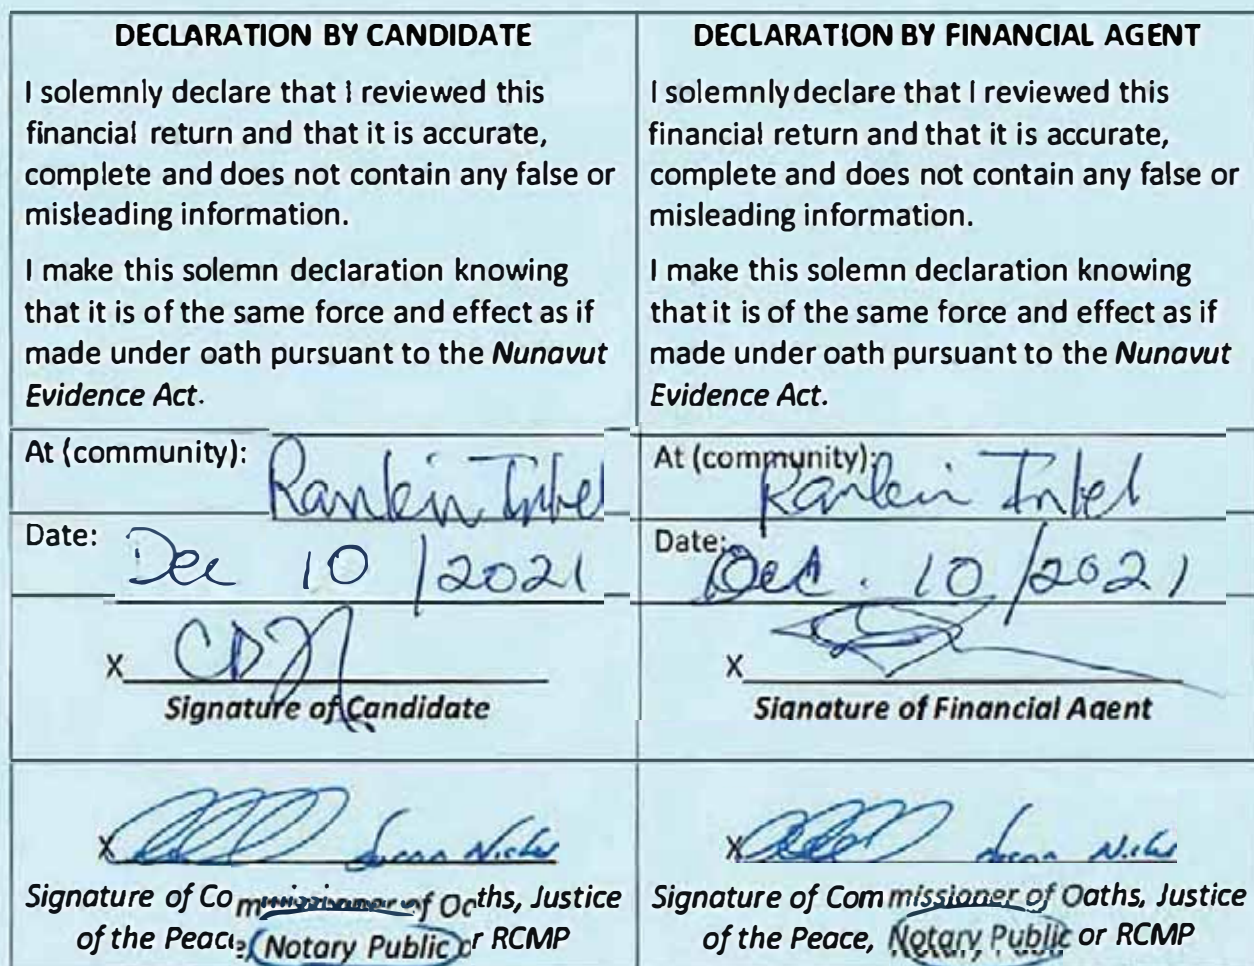 DECLARATION BY CANDIDATE
I solemnly declare that I reviewed this
financial return and that it is accurate,
complete and does not contain any false or
misleading information.
I make this solemn declaration knowing
that it is of the same force and effect as if
made under oath pursuant to the Nunavut
Evidence Act.
At (community): Rankin Inlet
Date: Dec 10/2021
X
Signature of Candidate
X
Signature of Commissioner of Oaths, Justice
of the Peace, Notary Public or RCMP
DECLARATION BY FINANCIAL AGENT
I solemnly declare that I reviewed this
financial return and that it is accurate,
complete and does not contain any false or
misleading information.
I make this solemn declaration knowing
that it is of the same force and effect as if
made under oath pursuant to the Nunavut
Evidence Act.
At (community): Rankin Inlet
Date: 10/2021
X
Signature of Financial Agent
X
Signature of Commissioner of Oaths, Justice
of the Peace, Notary Public or RCMP